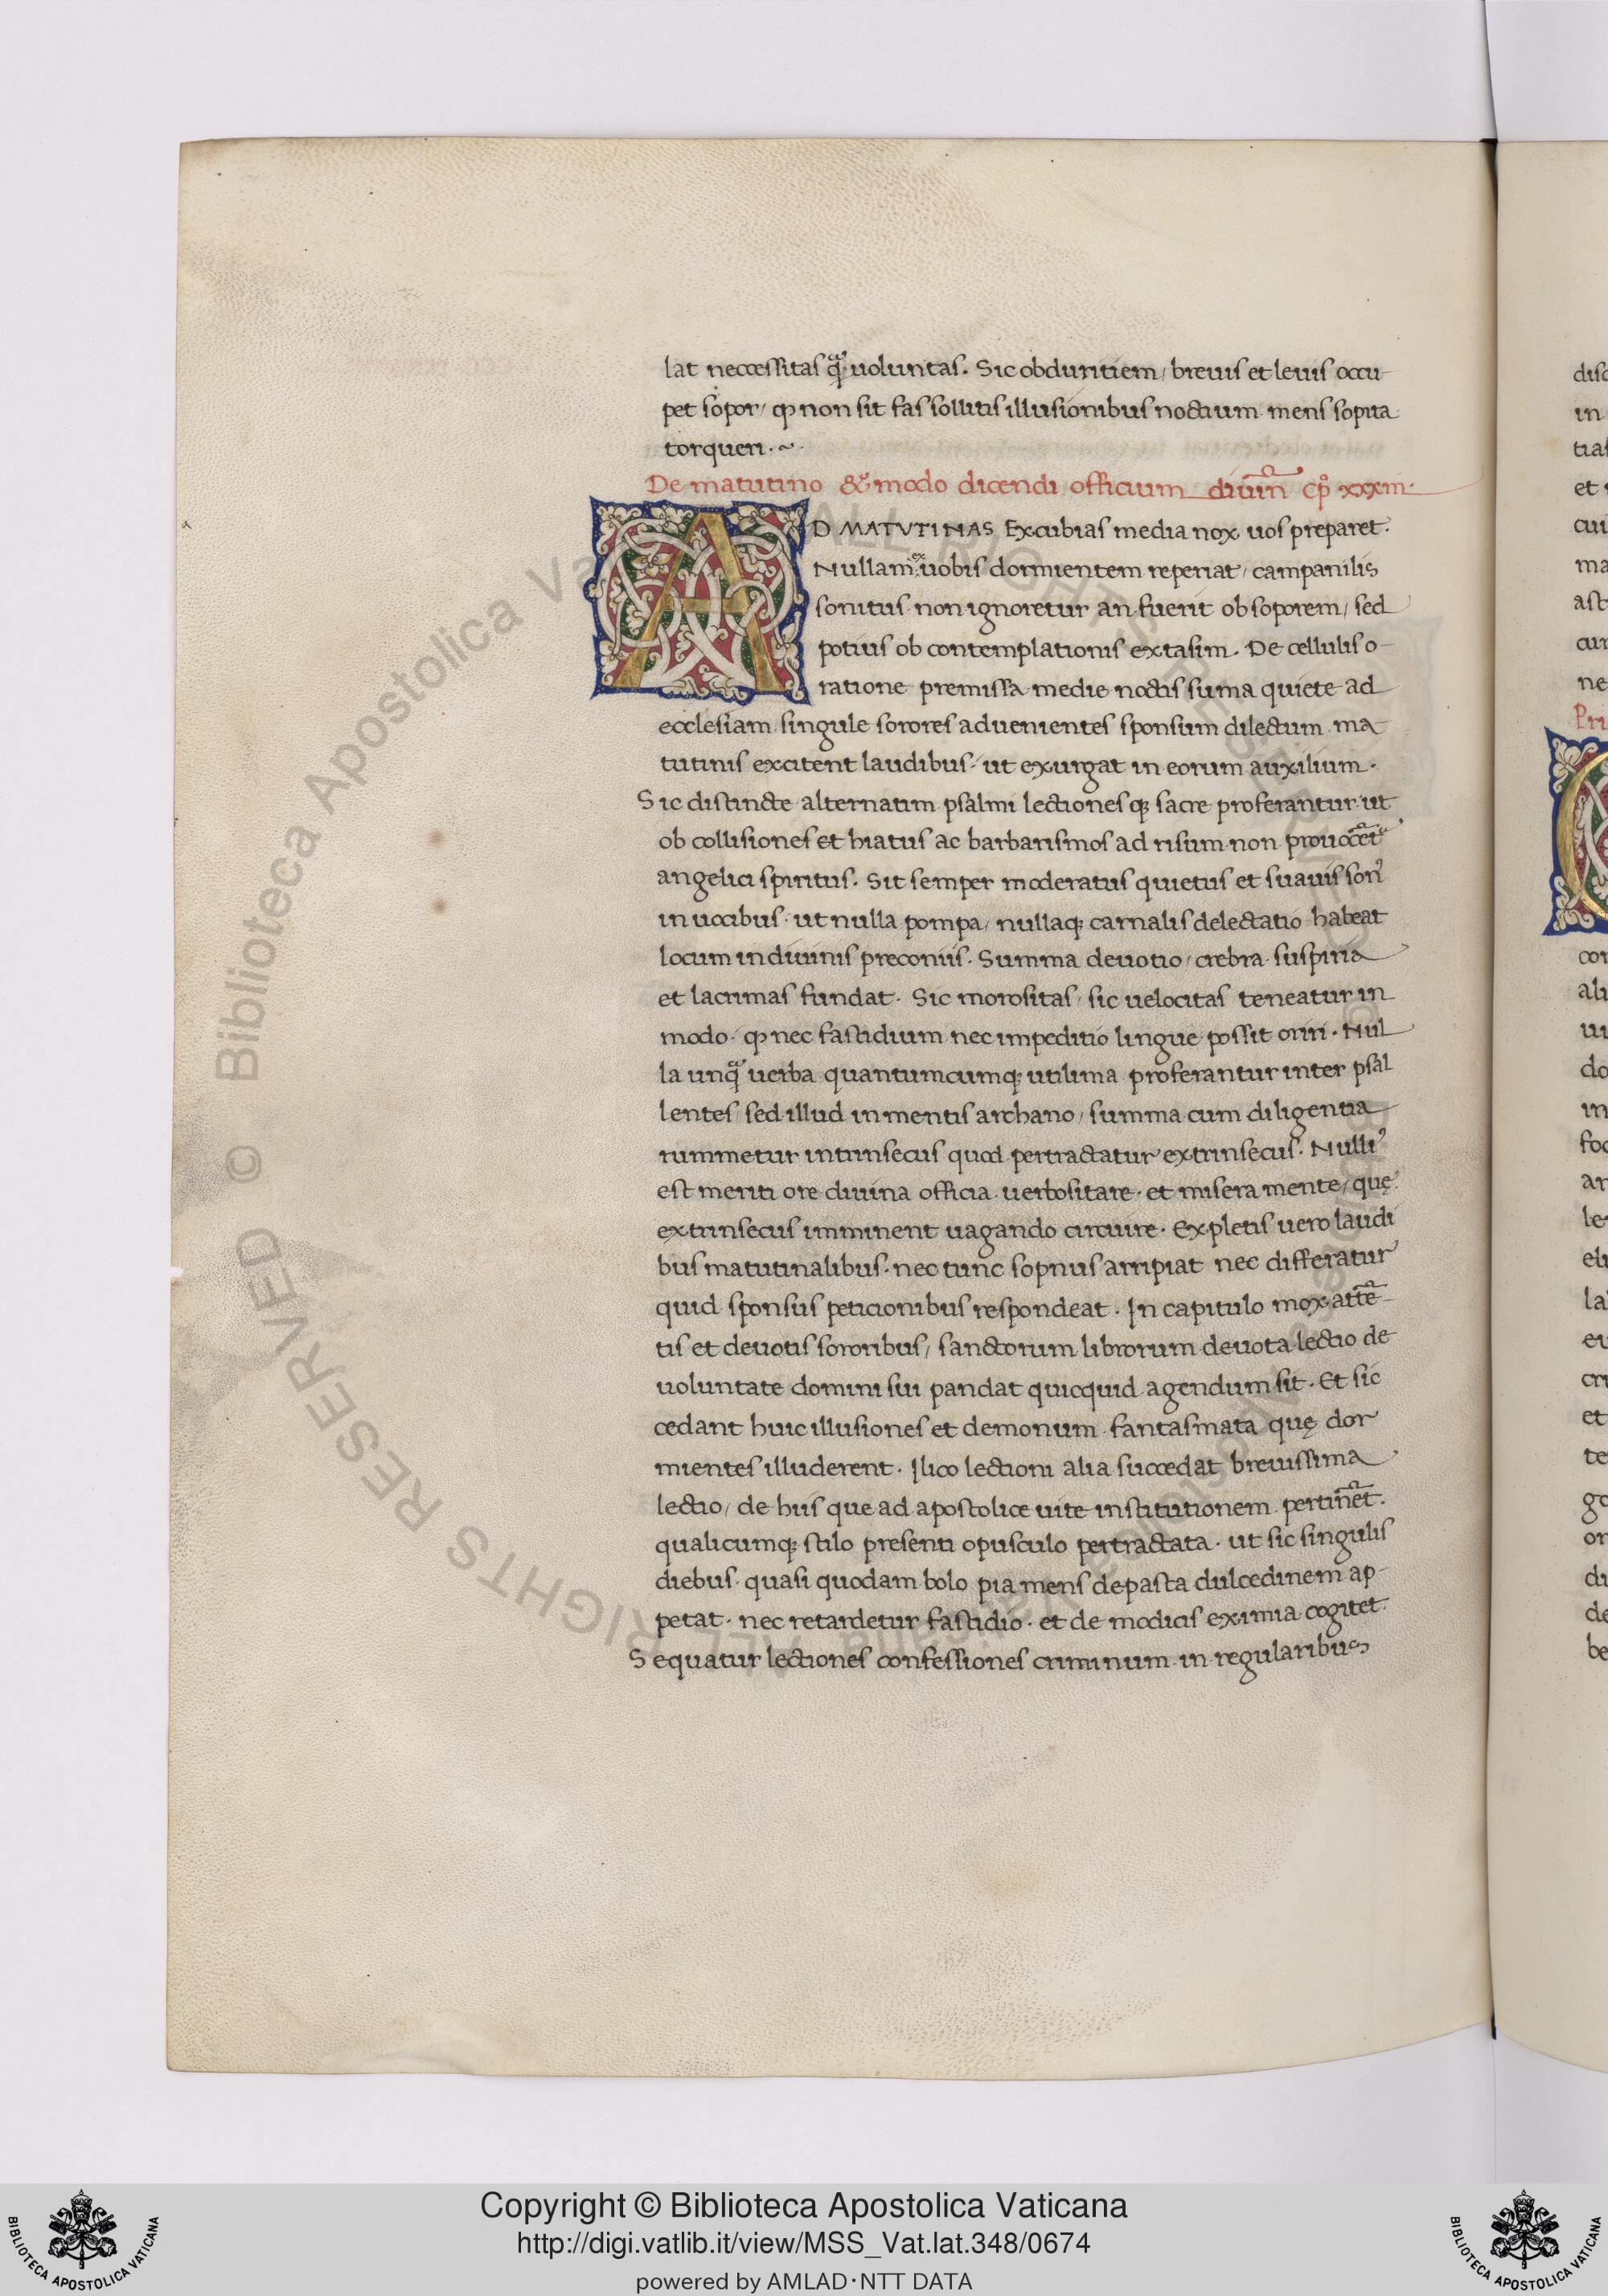 lat necessitas q̃ uoluntas. Sic obduritiem, breuis et leuis occu-
pet sopor, ꝙ non sit fas sollitis illusionibus noctium mens sopita
torqueri. ~
De matutino & modo dicendi officium diuin̄ cp̊ xxxiii.
AD MATVTINAS Excubias media nox uos preparet.
Nullam ex uobis dormientem reperiat, campanilis
sonitus non ignoretur an fuerit ob soporem, sed
potius ob contemplationis extasim. De cellulis o-
ratione premissa medie noctis suma quiete ad
ecclesiam singule sorores aduenientes sponsum dilectum ma-
tutinis excitent laudibus. ut exurgat in eorum auxilium.
Sic distincte alternatim psalmi lectionesqꝫ sacre proferantur ut
ob collisiones et hiatus ac barbarismos ad risum non prouocet̃
angelici spiritus. Sit semper moderatus quietus et suauis sonꝰ
in uocibus. ut nulla pompa, nullaqꝫ carnalis delectatio habeat
locum in diuinis preconiis. Summa deuotio, crebra suspiria
et lacrimas fundat. Sic morositas, sic uelocitas teneatur in
modo. ꝙ nec fastidium nec impeditio lingue possit oriri. Nul
la unq̃ uerba quantumcumqꝫ utilima proferantur inter psal
lentes, sed illud in mentis archano, summa cum diligentia
rummetur intrinsecus quod pertractatur extrinsecus. Nulliꝰ
est meriti ore diuina officia uerbositare. et misera mente, quę
extrinsecus imminent uagando circuire. Expletis uero laudi
bus matutinalibus. nec tunc sopnus arripiat nec differatur
quid sponsus peticionibus respondeat. In capitulo mox att̃e-
tis et deuotis sororibus, sanctorum librorum deuota lectio de
uoluntate domini sui pandat quicquid agendum sit. Et sic
cedant huic illusiones et demonum fantasmata quę dor
mientes illuderent. Ilico lectioni alia succedat breuissima
lectio, de hiis que ad apostolice uite institutionem pertin̄et.
qualicumqꝫ stilo presenti opusculo pertractata. ut sic singulis
diebus. quasi quodam bolo pia mens depasta dulcedinem ap-
petat. nec retardetur fastidio. et de modicis eximia cogitet.
Sequatur lectiones confessiones criminum in regularibus
Copyright © Biblioteca Apostolica Vaticana
http://digi.vatlib.it/view/MSS_Vat.lat.348/0674
powered by AMLAD·NTT DATA
BIBLIOTECA APOSTOLICA VATICANA
BIBLIOTECA APOSTOLICA VATICANA